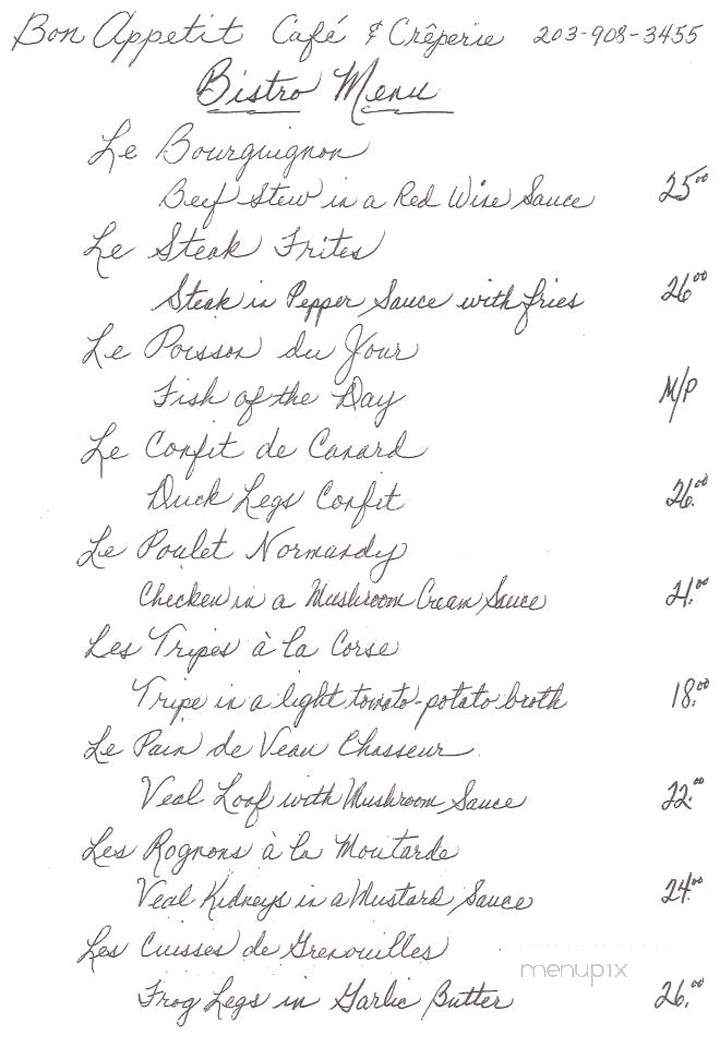 Bon Appetit Café & Crêperie 203-908-3455
Bistro Menu
Le Bourguignon
Beef Stew in a Red Wine Sauce 25.00
Le Steak Frites
Steak in Pepper Sauce with fries 26.00
Le Poisson du Jour
Fish of the Day M/P
Le Confit de Canard
Duck Legs Confit 26.00
Le Poulet Normandy
Chicken in a Mushroom Cream Sauce 21.00
Les Tripes à la Corse
Tripe in a light tomato-potato broth 18.00
Le Pain de Veau Chasseur
Veal Loaf with Mushroom Sauce 22.00
Les Rognons à la Moutarde
Veal Kidneys in a Mustard Sauce 24.00
Les Cuisses de Grenouilles
menupix
Frog Legs in Garlic Butter 26.00